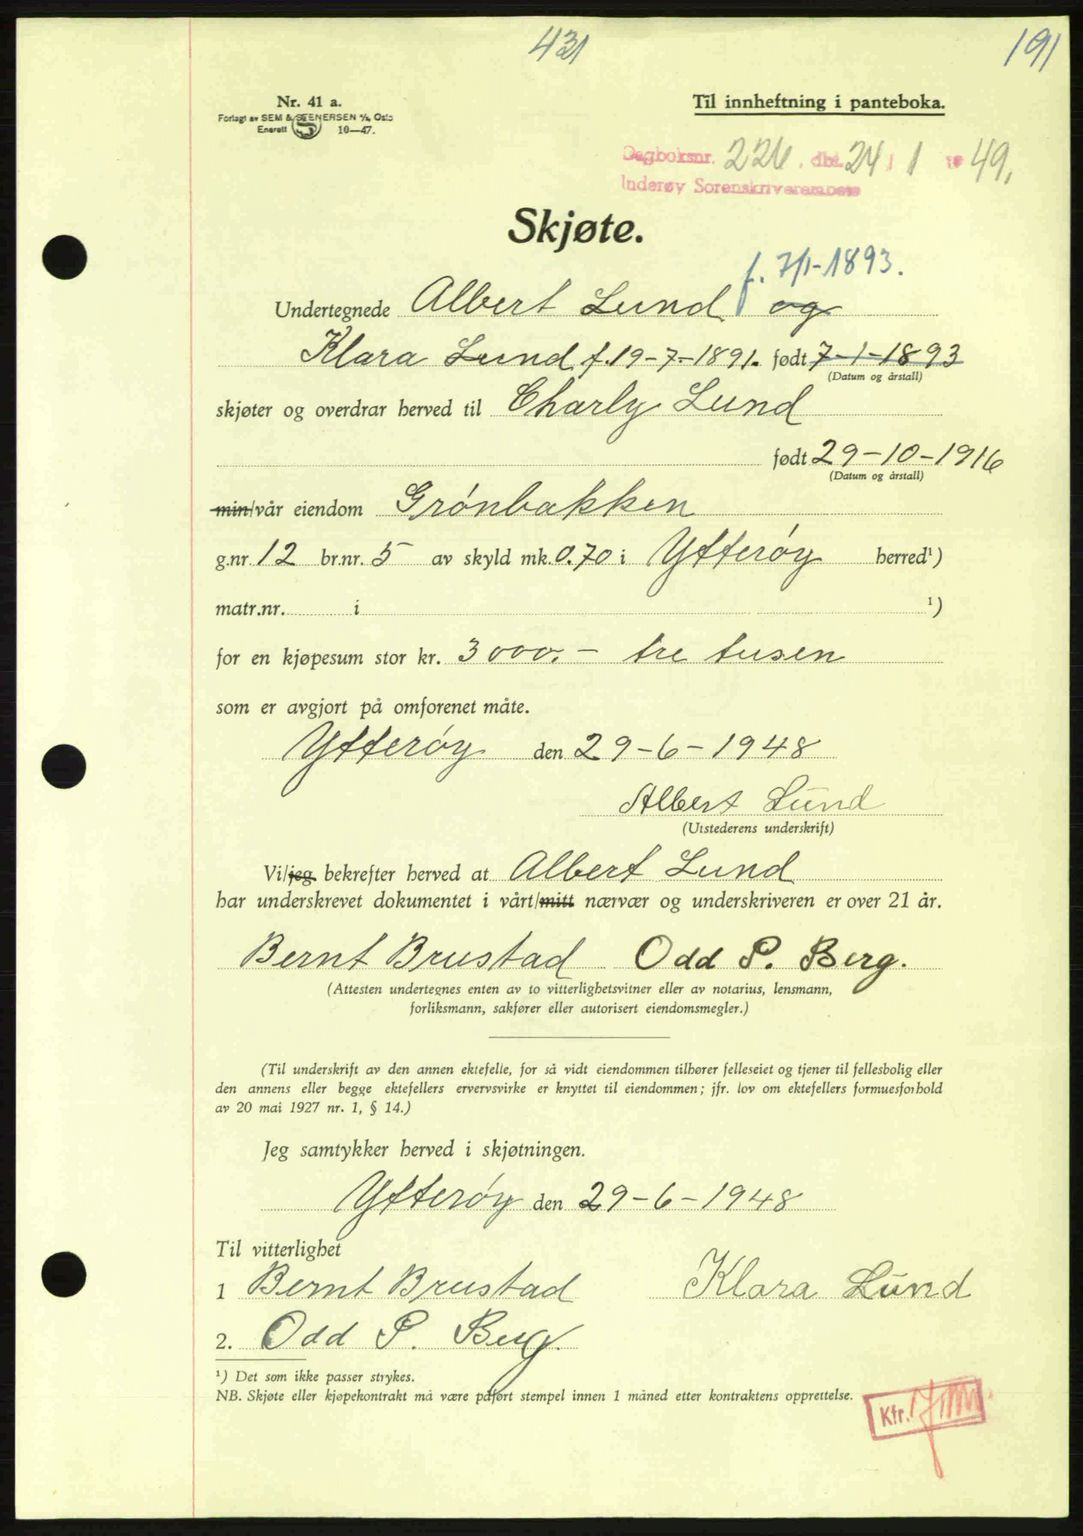 431
191
Nr. 41 a.
Forlagt av SEM & STENERSEN A/s, Oslo
Enerett 10—47.
Til innheftning i panteboka.
Dagboksnr. 226, dbl. 24 / 1 19 49.
Inderøy Sorenskriverembete
Skjøte.
f. 7/1-1893.
Undertegnede Albert Lund og
Klara Lund f. 19-7-1891. født 7-1-1893
(Datum og årstall)
skjøter og overdrar herved til Charly Lund
født 29-10-1916
(Datum og årstall)
min/vår eiendom Grónbakken
g.nr. 12 br.nr. 5 av skyld mk. 0.70 i Ytterøy herred¹)
matr.nr. i ¹)
for en kjøpesum stor kr. 3000.- tre tusen
som er avgjort på omforenet måte.
Ytterøy den 29-6-1948
Albert Lund
(Utstederens underskrift)
Vi/jeg bekrefter herved at Albert Lund
har underskrevet dokumentet i vårt/mitt nærvær og underskriveren er over 21 år.
Bernt Brustad Odd P. Berg.
(Attesten undertegnes enten av to vitterlighetsvitner eller av notarius, lensmann,
forliksmann, sakfører eller autorisert eiendomsmegler.)
(Til underskrift av den annen ektefelle, for så vidt eiendommen tilhører felleseiet og tjener til fellesbolig eller
den annens eller begge ektefellers ervervsvirke er knyttet til eiendommen; jfr. lov om ektefellers formuesforhold
av 20 mai 1927 nr. 1, § 14.)
Jeg samtykker herved i skjøtningen.
Ytterøy den 29-6-1948
Til vitterlighet
1 Bernt Brustad Klara Lund
2. Odd P. Berg.
¹) Det som ikke passer strykes.
NB. Skjøte eller kjøpekontrakt må være påført stempel innen 1 måned etter kontraktens opprettelse.
Kfr.